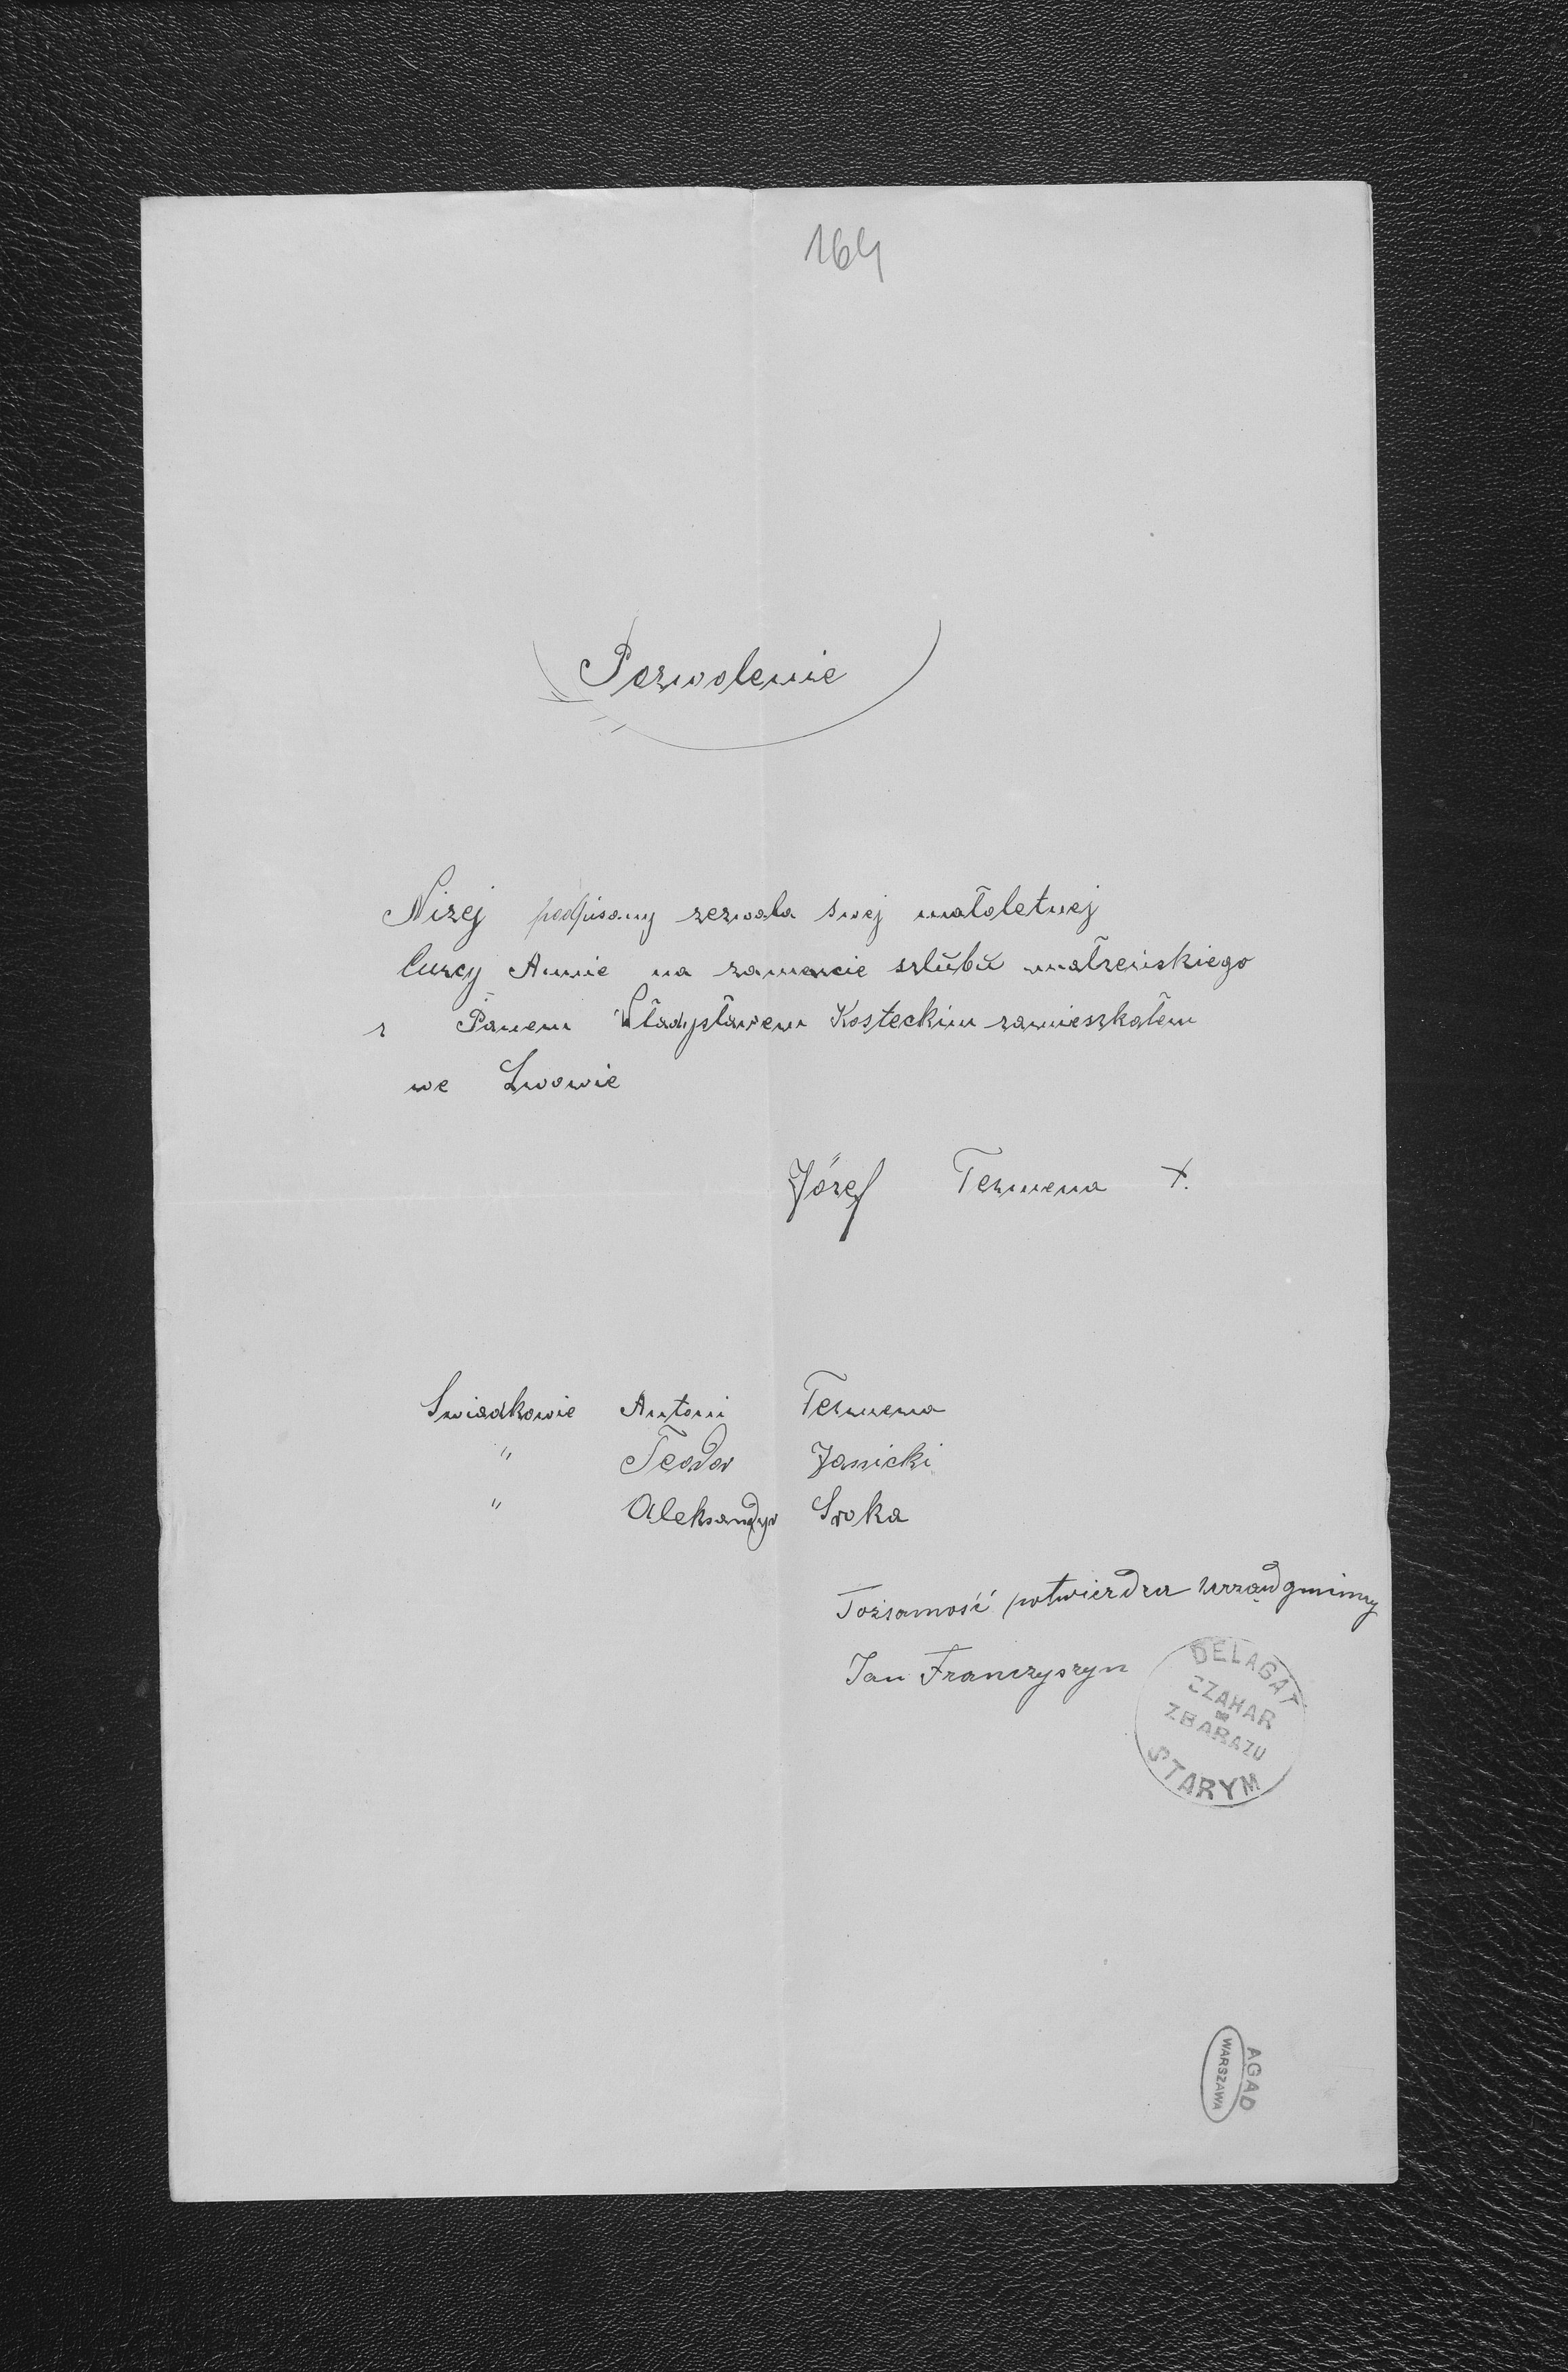 164
Pozwolenie
Nizej podpisany zezwala swej małoletnej
Curcy Annie na zawarcie szlubu małzeńskiego
z Panem Władysławem Kosteckim zamieszkałem
we Lwowie
Józef Termena X.
Swiadkowie Antoni Termena
" Teodor Janicki
" Aleksandyr Sroka
Tożsamość potwierdza Urząd gminny
Jan Franczyszyn
DELAGAT
CZAHAR
w
ZBARAZU
STARYM
AGAD
WARSZAWA